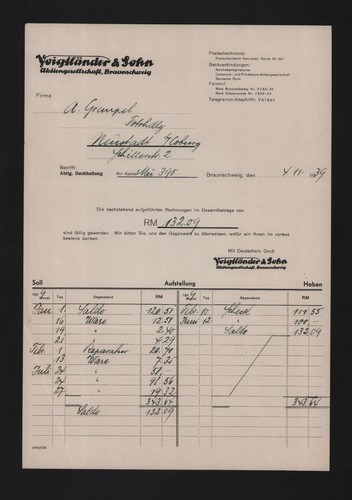 Voigtländer & Sohn
Aktiengesellschaft, Braunschweig
Postscheckkonto:
Postscheckamt Hannover Konto Nr.
Bankverbindungen:
Reichsbankgirokonto
Commerz- und Privatbank Aktiengesellschaft
Deutsche Bank
Fernruf:
Telegramm-Anschrift: Voider
Firma
A. Grempel
Fotohdlg
Neustadt b/Coburg
Schillerstr. 2
Betrifft:
Abtlg. Buchhaltung Ihr Konto Neu 390
Braunschweig, den 4. 11. 1939
Die nachstehend aufgeführten Rechnungen im Gesamtbetrage von
RM 132.09
sind fällig geworden. Wir bitten Sie, uns den Gegenwert zu überweisen, wofür wir Ihnen im voraus
bestens danken.
Mit Deutschem Gruß
Voigtländer & Sohn
Aktiengesellschaft, Braunschweig
Soll Aufstellung Haben
Monat Tag Gegenstand RM Monat Tag Gegenstand RM
Jan. 1 Saldo 120.51 Feb. Scheck 111.55
16 Ware 12.51 Juni 12 " 100,-
19 " 2.40 Saldo 132.09
21 " 4.29
Feb. 1 Reparatur 20.70
13 Ware 7.35
Juli 24 " 58,-
24 " 98.56
27 " 19.32
343.64 343.64
Saldo 132.09